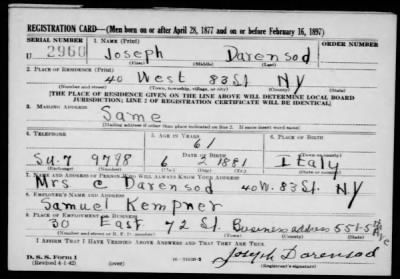 REGISTRATION CARD—(Men born on or after April 28, 1877 and on or before February 16, 1897)
SERIAL NUMBER 1. NAME (Print) ORDER NUMBER
U 2960 Joseph Darensod
(First) (Middle) (Last)
2. PLACE OF RESIDENCE (Print)
40 West 83 St NY
(Number and street) (Town, township, village, or city) (County) (State)
[THE PLACE OF RESIDENCE GIVEN ON THE LINE ABOVE WILL DETERMINE LOCAL BOARD
JURISDICTION; LINE 2 OF REGISTRATION CERTIFICATE WILL BE IDENTICAL]
3. MAILING ADDRESS
Same
[Mailing address if other than place indicated on line 2. If same insert word same]
4. TELEPHONE 5. AGE IN YEARS 6. PLACE OF BIRTH
61
DATE OF BIRTH
SU. 7 9798 6 2 1881 Italy
(Exchange) (Number) (Mo.) (Day) (Yr.) (State or country)
7. NAME AND ADDRESS OF PERSON WHO WILL ALWAYS KNOW YOUR ADDRESS
Mrs C Darensod 40 W. 83 St. NY
8. EMPLOYER'S NAME AND ADDRESS
Samuel Kempner
9. PLACE OF EMPLOYMENT OR BUSINESS
30 East 72 St. Business address 551-5th Ave
(Number and street or R. F. D. number)
I AFFIRM THAT I HAVE VERIFIED ABOVE ANSWERS AND THAT THEY ARE TRUE.
D. S. S. Form 1
(Revised 4-1-42)
Joseph Darensod
(Registrant's signature)